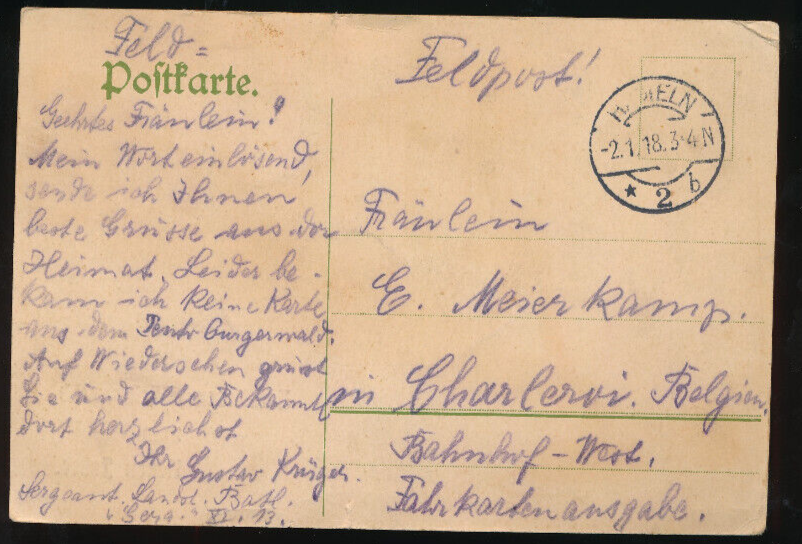 Feld=
Postkarte.
Feldpost!
Geehrtes Fräulein!
Mein Wort einlösend,
sende ich Ihnen
beste Grüsse aus der
Heimat. Leider be-
kam ich keine Karte
aus dem Teutoburgerwald.
Auf Wiedersehen grüsst
Sie und alle Bekannte
dort herzlichst
Ihr Gustav Krüger.
Sergeant. Landst. Batl.
"Gera." XI. 13.
HAMELN
-2.1.18.3-4N
* 2 b
Fräulein
E. Meierkamp.
in Charleroi. Belgien.
Bahnhof-West.
Fahrkartenausgabe.